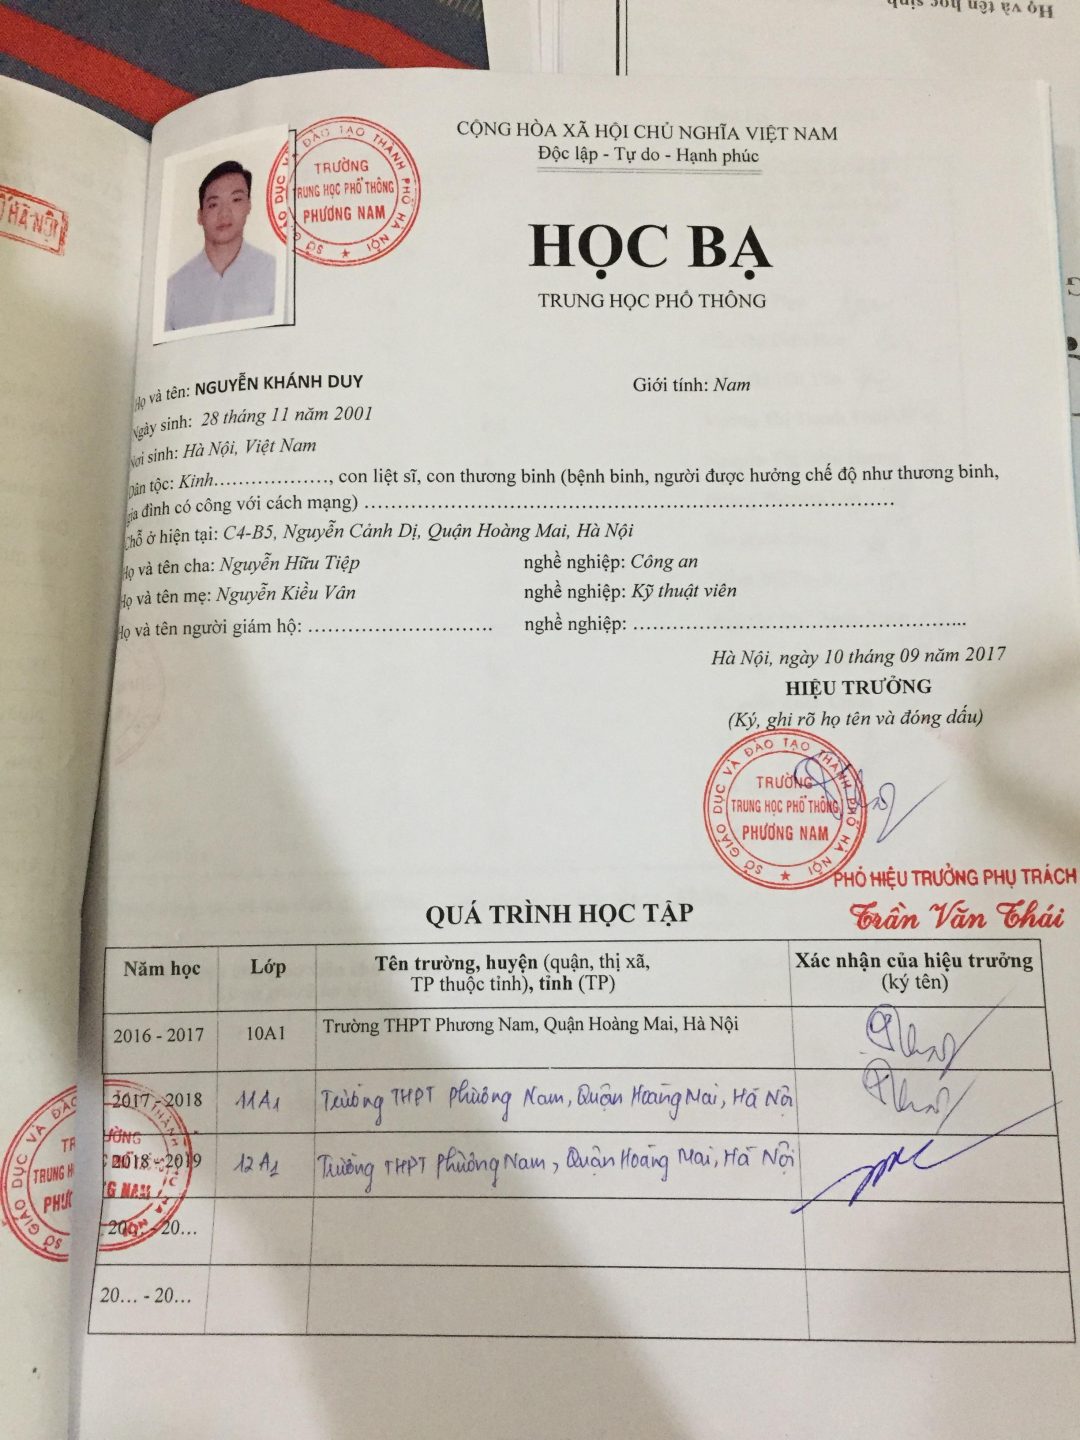 Họ và tên học sinh
HÀ NỘI
CỘNG HÒA XÃ HỘI CHỦ NGHĨA VIỆT NAM
Độc lập - Tự do - Hạnh phúc
TRƯỜNG
TRUNG HỌC PHỔ THÔNG
PHƯƠNG NAM
HỌC BẠ
TRUNG HỌC PHỔ THÔNG
Họ và tên: NGUYỄN KHÁNH DUY Giới tính: Nam
Ngày sinh: 28 tháng 11 năm 2001
Nơi sinh: Hà Nội, Việt Nam
Dân tộc: Kinh………………, con liệt sĩ, con thương binh (bệnh binh, người được hưởng chế độ như thương binh,
gia đình có công với cách mạng) ……………………………………………………………………
Chỗ ở hiện tại: C4-B5, Nguyễn Cảnh Dị, Quận Hoàng Mai, Hà Nội
Họ và tên cha: Nguyễn Hữu Tiệp nghề nghiệp: Công an
Họ và tên mẹ: Nguyễn Kiều Vân nghề nghiệp: Kỹ thuật viên
Họ và tên người giám hộ: ………………………. nghề nghiệp: …………………………………………...
Hà Nội, ngày 10 tháng 09 năm 2017
HIỆU TRƯỞNG
(Ký, ghi rõ họ tên và đóng dấu)
SỞ GIÁO DỤC VÀ ĐÀO TẠO THÀNH PHỐ HÀ NỘI
TRƯỜNG
TRUNG HỌC PHỔ THÔNG
PHƯƠNG NAM
PHÓ HIỆU TRƯỞNG PHỤ TRÁCH
Trần Văn Thái
QUÁ TRÌNH HỌC TẬP
Năm học Lớp Tên trường, huyện (quận, thị xã, Xác nhận của hiệu trưởng
TP thuộc tỉnh), tỉnh (TP) (ký tên)
2016 - 2017 10A1 Trường THPT Phương Nam, Quận Hoàng Mai, Hà Nội
2017 - 2018 11A1 Trường THPT Phương Nam, Quận Hoàng Mai, Hà Nội
2018 - 2019 12A1 Trường THPT Phương Nam, Quận Hoàng Mai, Hà Nội
20… - 20…
20… - 20…